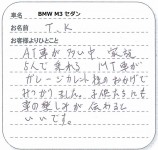 車名 BMW M3 セダン
お名前 T.K
お客様よりひとこと
AT車が多い中、家族
なんて乗れる MT車が
ガレージカレント様のおかげで
みつかりました。子供たちにも
車の楽しみが伝わると
いいです。